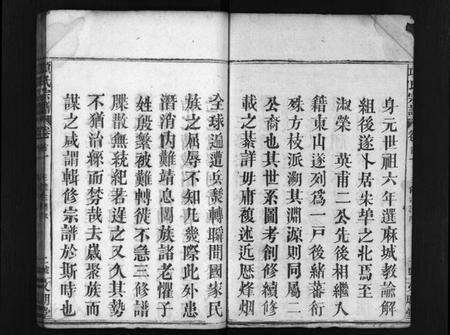 身元世祖六年選麻城教諭解
組後遂卜居朱旱之北焉至
淑榮 英甫二公先後相繼入
籍東山遂列為一戶後緒蕃衍
殊方枝派溯其淵源則同屬二
公裔也其世系圖考創修續修
載之綦詳毋庸複述近歷烽烟
全球迍遭兵燹轉瞬間國家民
族之屈辱不知凡幾際此外患
潛消內難靖息闔族諸老懼子
姓殷繁被難轉徙不急三修譜
牒散無統紀若遲之又久其勢
不猶治絲而棼哉去歲聚族而
謀之咸謂輯修宗譜於斯時也